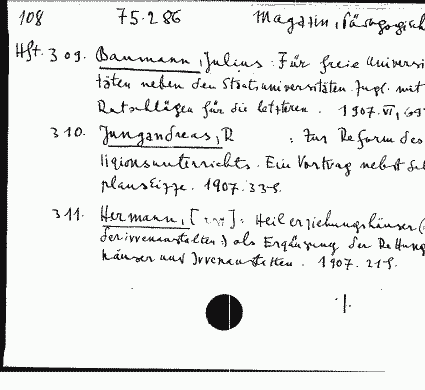 108 75.286 Magazin, Pädagogisch
Hft. 309. Baumann, Julius: Für freie Universi
täten neben den Staatsuniversitäten. Zugl. mit
Ratschlägen für die letzteren. 1907. VI,
310. Jungandreas, R : Zur Reform des
ligionsunterrichts. Ein Vortrag nebst
planskizze. 1907. 33 S.
311. Hermann, [ ]: Heilerziehungshäuser (
derirrenanstalten) als Ergänzung der Rettungs
häuser und Irrenanstalten. 1907. 21 S.